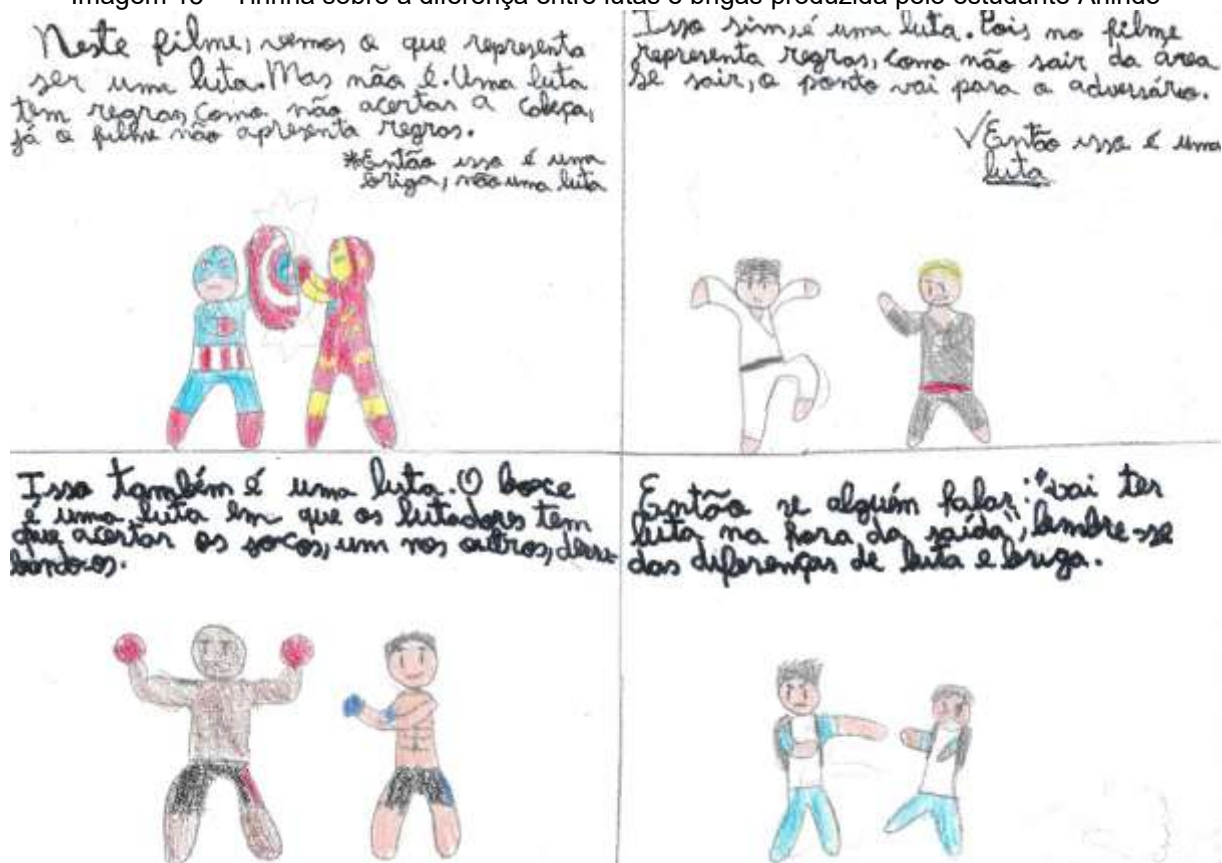 Imagem 16 – Tirinha sobre a diferença entre lutas e brigas produzida pelo estudante Arlindo
Neste filme, vemos o que representa
ser uma luta. Mas não é. Uma luta
tem regras, como não acertar a cabeça,
já o filme não apresenta regras.
*Então isso é uma
briga, não uma luta
Isso sim, é uma luta. Pois no filme
representa regras, como não sair da área
se sair, o ponto vai para o adversário.
√ Então isso é uma
luta
Isso também é uma luta. O boxe
é uma luta em que os lutadores tem
que acertar os socos, um nos outros, derru-
bandoos.
Então se alguém falar: "vai ter
luta na hora da saída", lembre-se
das diferenças de luta e briga.